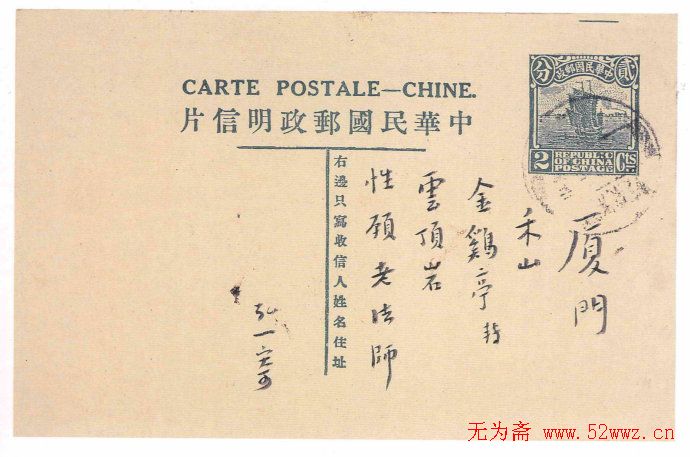 CARTE POSTALE—CHINE.
中華民國郵政明信片
中華民國郵政
貳分
REPUBLIC
OF CHINA
POSTAGE
2 Cts
右邊只寫收信人姓名住址
厦門
禾山
金鷄亭
雲頂岩
性願老法師
弘一寄
无为斋 www.52wwz.cn